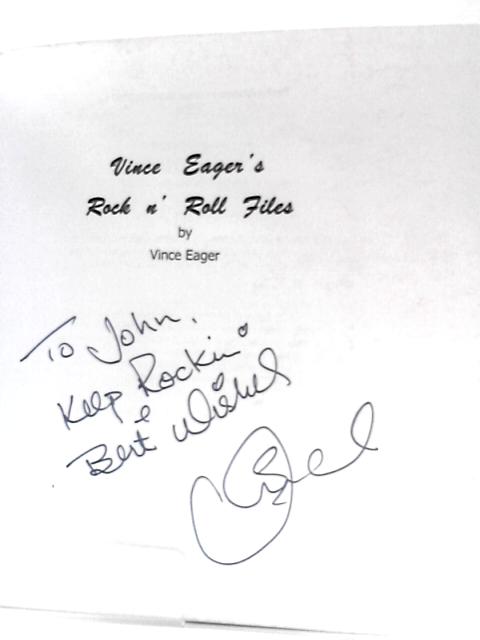 Vince Eager's
Rock n' Roll Files
by
Vince Eager
To John,
Keep Rockin'
&
Best Wishes